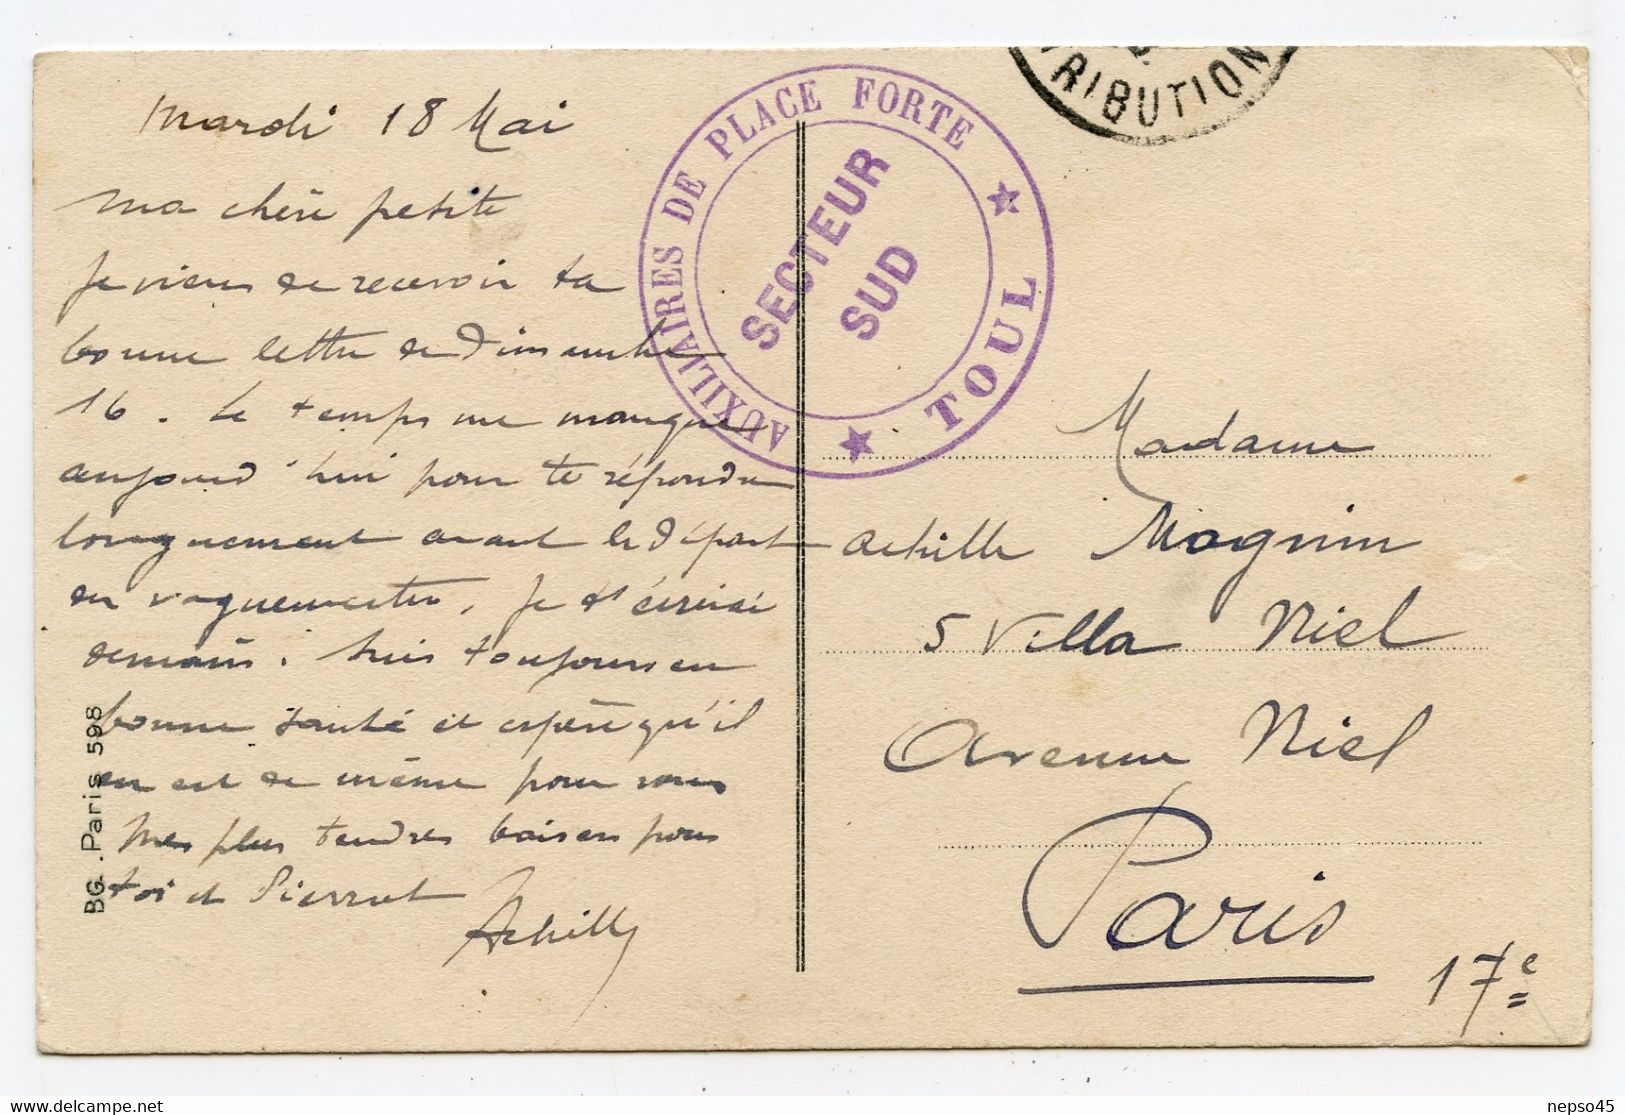 Mardi 18 Mai
Ma chère petite
Je viens de recevoir ta
bonne lettre de Dimanche
16. Le temps me manque
aujourd'hui pour te répondre
longuement avant le départ
du vaguemestre. Je t'écrirai
demain. Suis toujours en
bonne santé et espère qu'il
en est de même pour vous
Mes plus tendres baisers pour
toi et Pierrot
Achille
BG. Paris 598
AUXILIAIRES DE PLACE FORTE
TOUL
SECTEUR
SUD
TRIBUTION
Madame
Achille Magnin
5 Villa Niel
Avenue Niel
Paris
17e
delcampe.net
nepso45